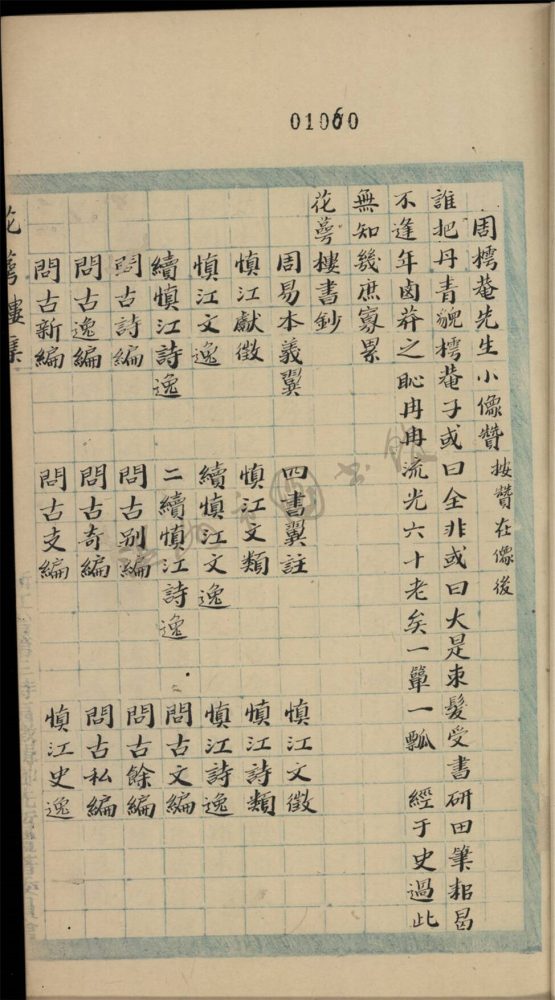 01060
周樗菴先生小像贊 按贊在像後
誰把丹青貌樗菴子或曰全非或曰大是束髮受書研田筆耜曷
不逢年鹵莽之恥冉冉流光六十老矣一簞一瓢 經子史過此
無知幾庶寡累
花萼樓書鈔
周易本義翼 四書翼註 慎江文徵
慎江獻徵 慎江文類 慎江詩類
慎江文逸 續慎江文逸 慎江詩逸
續慎江詩逸 二續慎江詩逸 問古文編
問古詩編 問古別編 問古餘編
問古逸編 問古奇編 問古私編
問古新編 問古支編 慎江史逸
花萼樓集